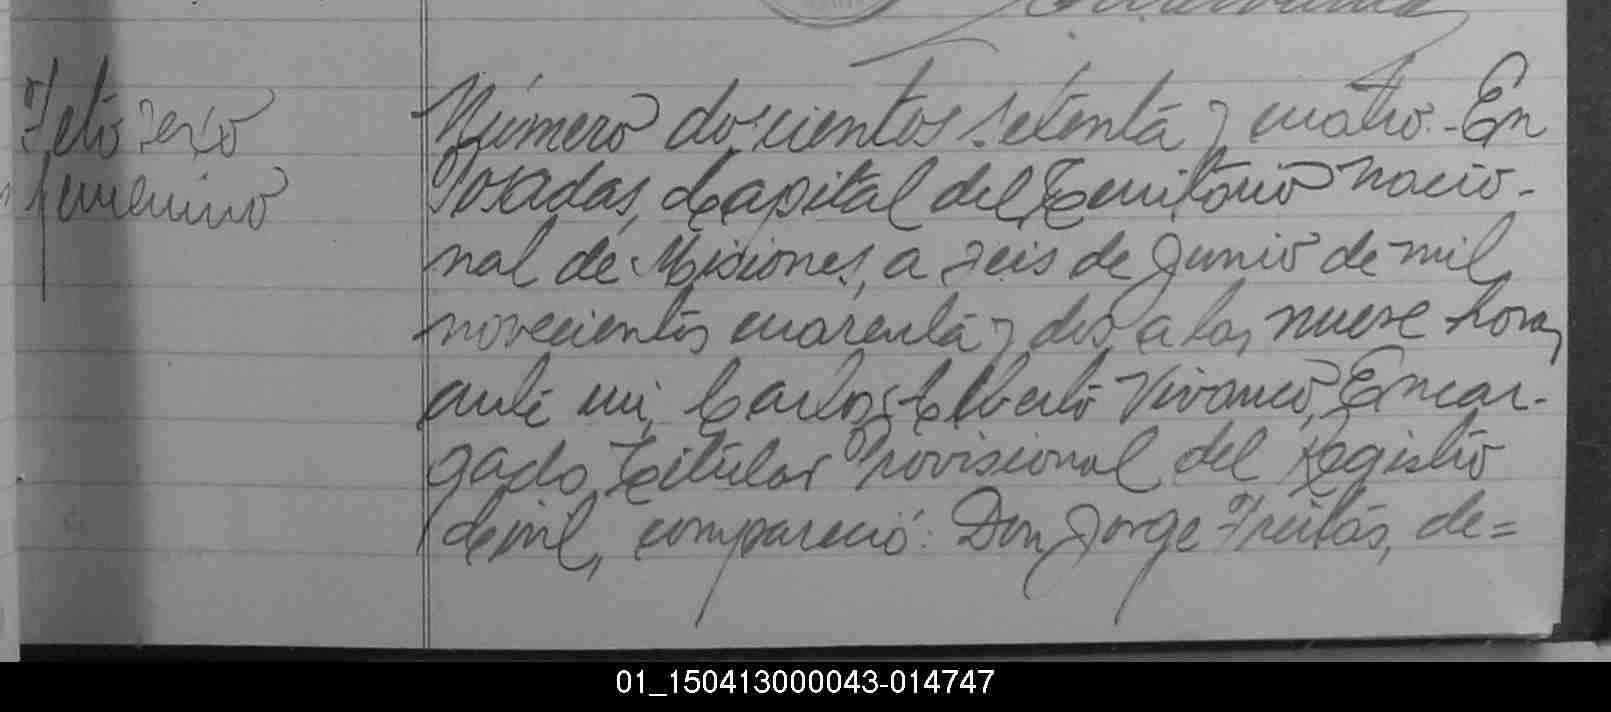 Feto sexo
femenino
Número doscientos setenta y cuatro.- En
Posadas, Capital del Territorio Nacio-
nal de Misiones, a seis de Junio de mil
novecientos cuarenta y dos, a las nueve horas,
ante mí, Carlos Alberto Vivanco, Encar-
gado Titular Provisional del Registro
Civil, compareció: Don Jorge Freitas, de=
01_150413000043-014747